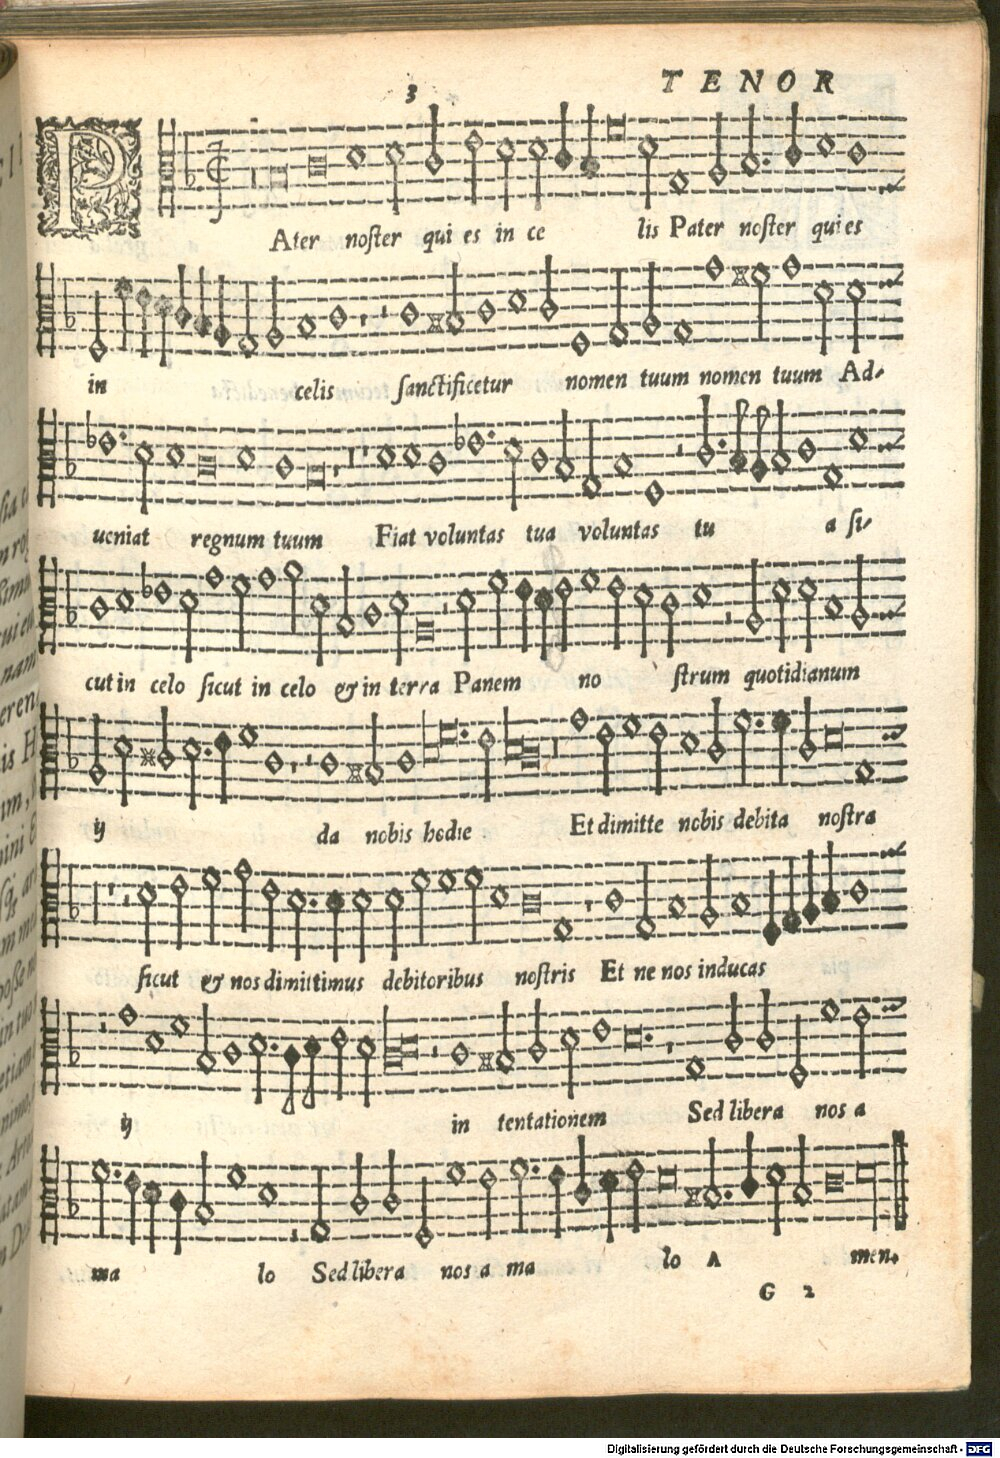 3 TENOR
PAter noster qui es in ce lis Pater noster qui es
in celis sanctificetur nomen tuum nomen tuum Ad-
ueniat regnum tuum Fiat voluntas tua voluntas tu a si-
cut in celo sicut in celo & in terra Panem no strum quotidianum
ij da nobis hodie Et dimitte nobis debita nostra
sicut & nos dimittimus debitoribus nostris Et ne nos inducas
ij in tentationem Sed libera nos a
ma lo Sed libera nos a ma lo A men.
G 2
Digitalisierung gefördert durch die Deutsche Forschungsgemeinschaft - DFG